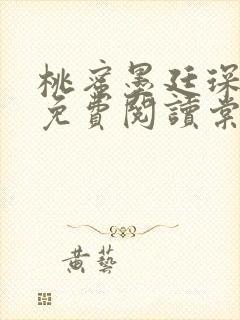 桃蜜墨廷琛
免費閱讀棠
黃藝